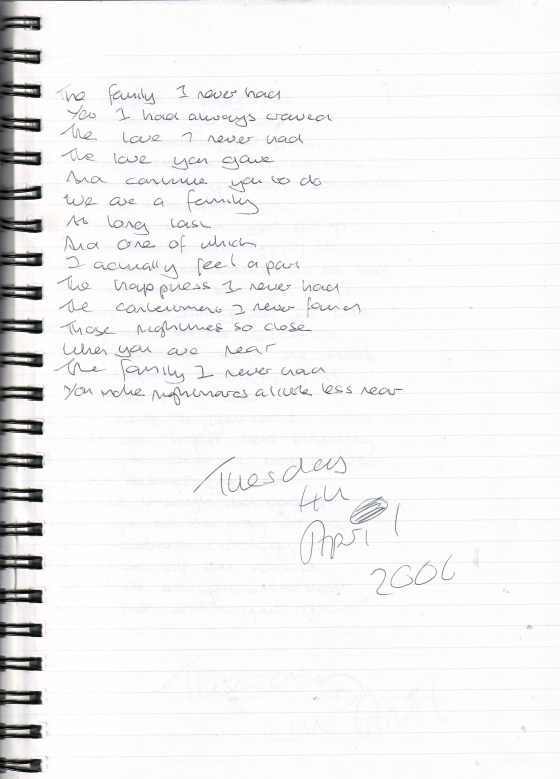 The family I never had
You I had always craved
The love I never had
The love you gave
And continue you to do
We are a family
At long last
And one of which
I actually feel a part
The happiness I never had
The contentment I never found
Those nightmares so close
When you are near
The family I never had
You make nightmares a little less near
Tuesday
4th
April
2006